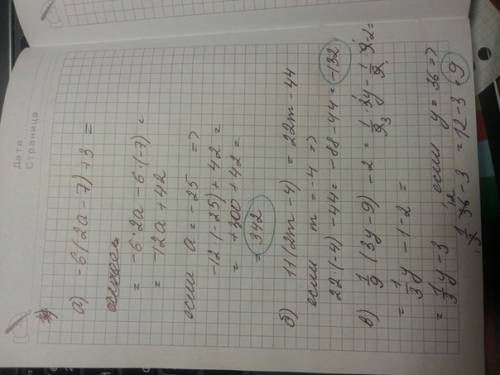 Дата
Страница
а) -6(2a-7)+3 =
= -6·2a-6·(-7) =
= -12a+42
если a = -25 =>
-12·(-25)+42 =
= +300+42 =
= 342
б) 11(2m-4) = 22m-44
если m = -4 =>
22·(-4)-44 = -88-44 = -132
в) 1/9 (3y-9) -2 = 1/9 · 3y - 1/9 · 9 - 2 =
= 1/3 y - 1 - 2 =
= 1/3 y - 3 если y = 36 =>
1/3 · 36 - 3 = 12 - 3 = 9